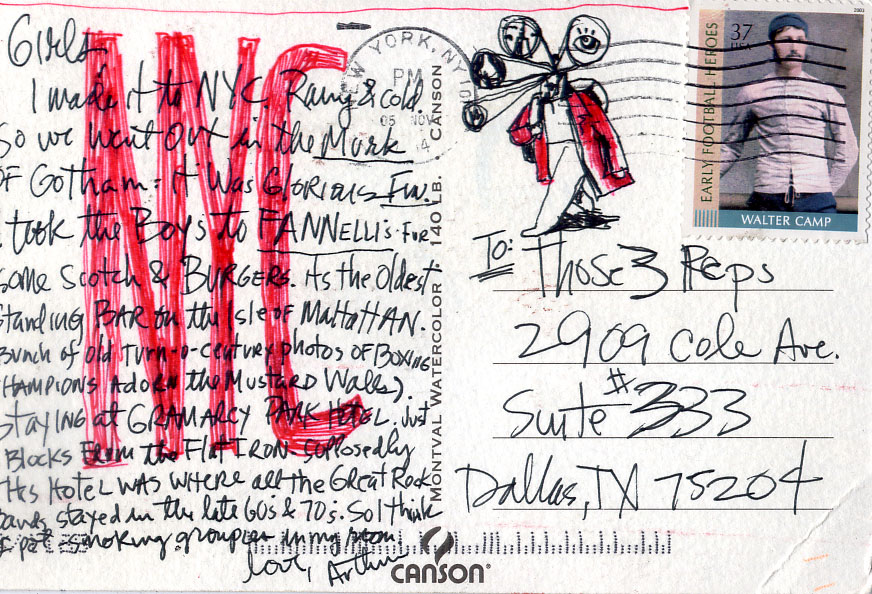 Girls,
I made it to NYC. Rainy & cold.
So we went OUT in the Murk
OF Gotham = it was GLORIOUS FUN.
took the Boys to FANNELLi's FOR
some Scotch & BURGERS. Its the Oldest
Standing BAR on the Isle of MaHaTTAN.
Bunch of old turn-o-century photos OF BOXING
CHAMPIONS ADORN the MUSTARD Walls).
STAYING at GRAMARCY PARK HOTEL. Just
Blocks From the FlatIRON. Supposedly
this HOTEL WAS WHERE all the GReat Rock
bands stayed in the late 60's & 70s. So I think
pot smoking groupies in my room.
love, Arthur
NYC
NEW YORK, NY
PM
05 NOV
MONTVAL WATERCOLOR 140 LB. CANSON
CANSON
37
USA
2003
EARLY FOOTBALL HEROES
WALTER CAMP
To: Those 3 Reps
2909 Cole Ave.
Suite #333
Dallas, TX 75204